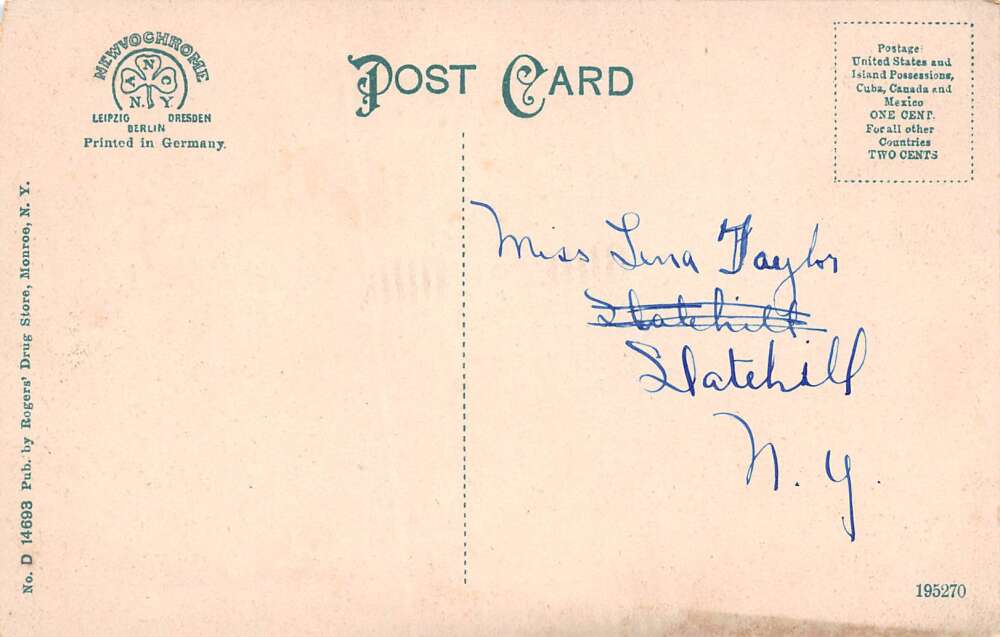 NEWVOCHROME
A N C
N. Y.
LEIPZIG DRESDEN
BERLIN
Printed in Germany.
POST CARD
Postage
United States and
Island Possessions,
Cuba, Canada and
Mexico
ONE CENT.
For all other
Countries
TWO CENTS
No. D 14693 Pub. by Rogers' Drug Store, Monroe, N. Y.
Miss Lena Taylor
Slatehill
Slatehill
N. Y.
195270